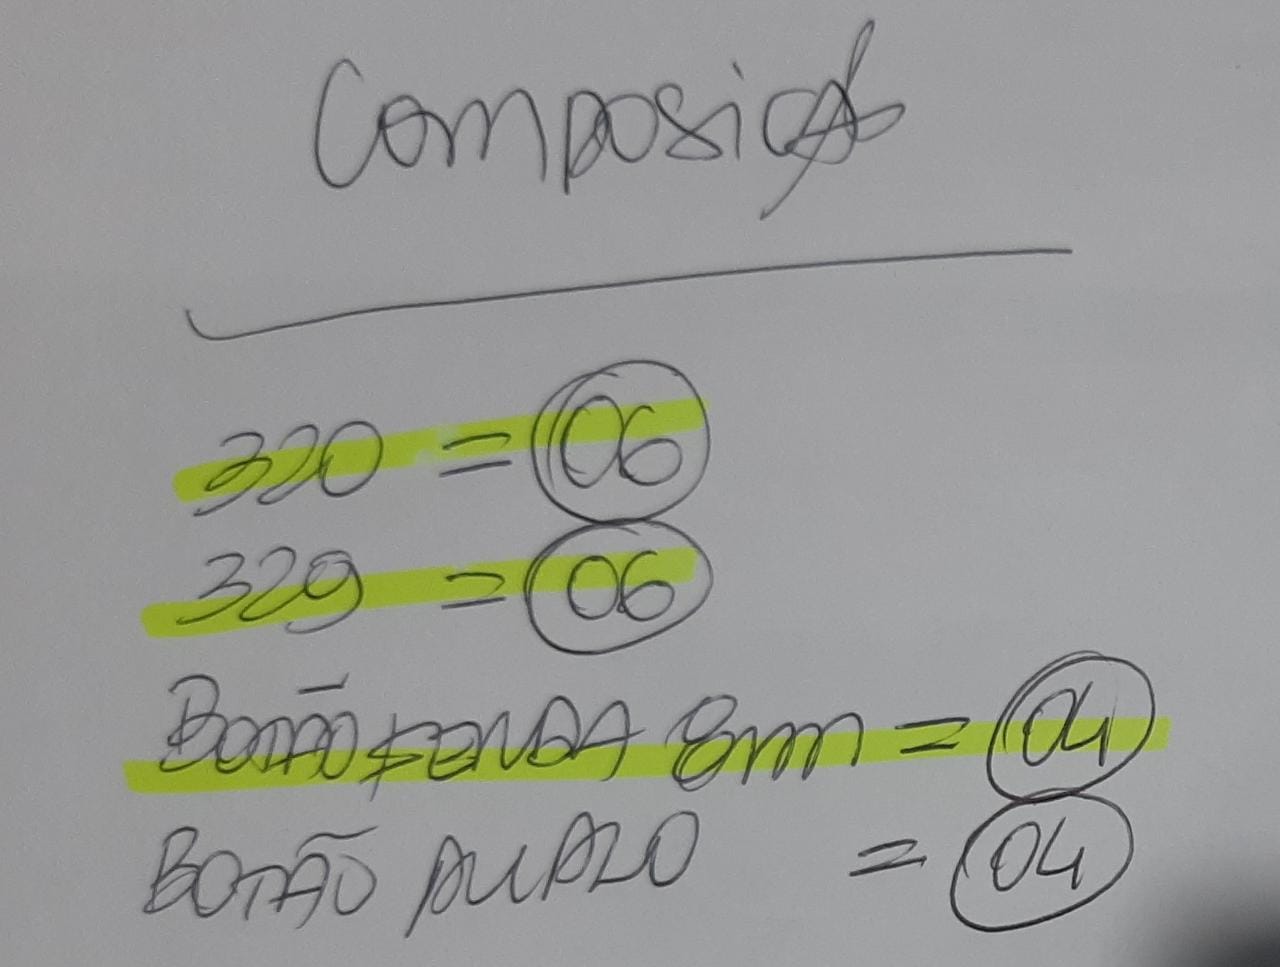 Composição
320 = 06
329 = 06
BOTÃO FENDA 8mm = 04
BOTÃO = 04